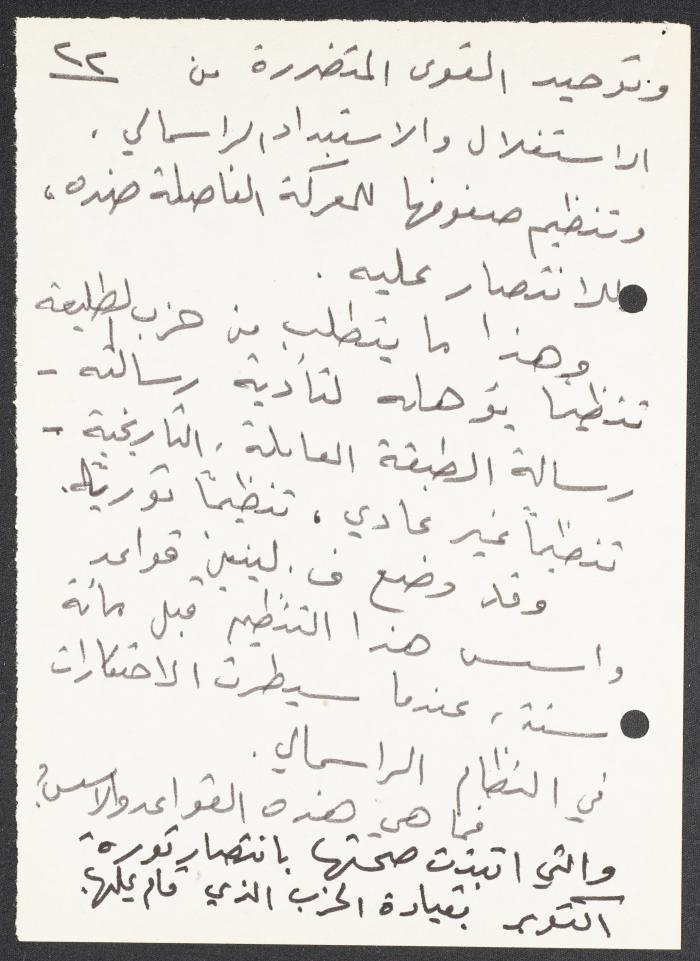 ٢٢
وتوحيد القوى المتضررة من
الاستغلال والاستبداد الراسمالي ،
وتنظيم صفوفها للمعركة الفاصلة ضده ،
للانتصار عليه .
وهذا ما يتطلب من حزب الطليعة
تنظيماً يؤهله لتأدية رسالته -
رسالة الطبقة العاملة ، التاريخية -
تنظيماً غير عادي ، تنظيماً ثورياً .
وقد وضع ف . لينين قواعد
واسس هذا التنظيم قبل مائة
سنة ، عندما سيطرت الاحتكارات
في النظام الراسمالي .
فما هي هذه القواعد والاسس ؟
والتي اثبتت صحتها بانتصار ثورة
اكتوبر بقيادة الحزب الذي قام عليها .